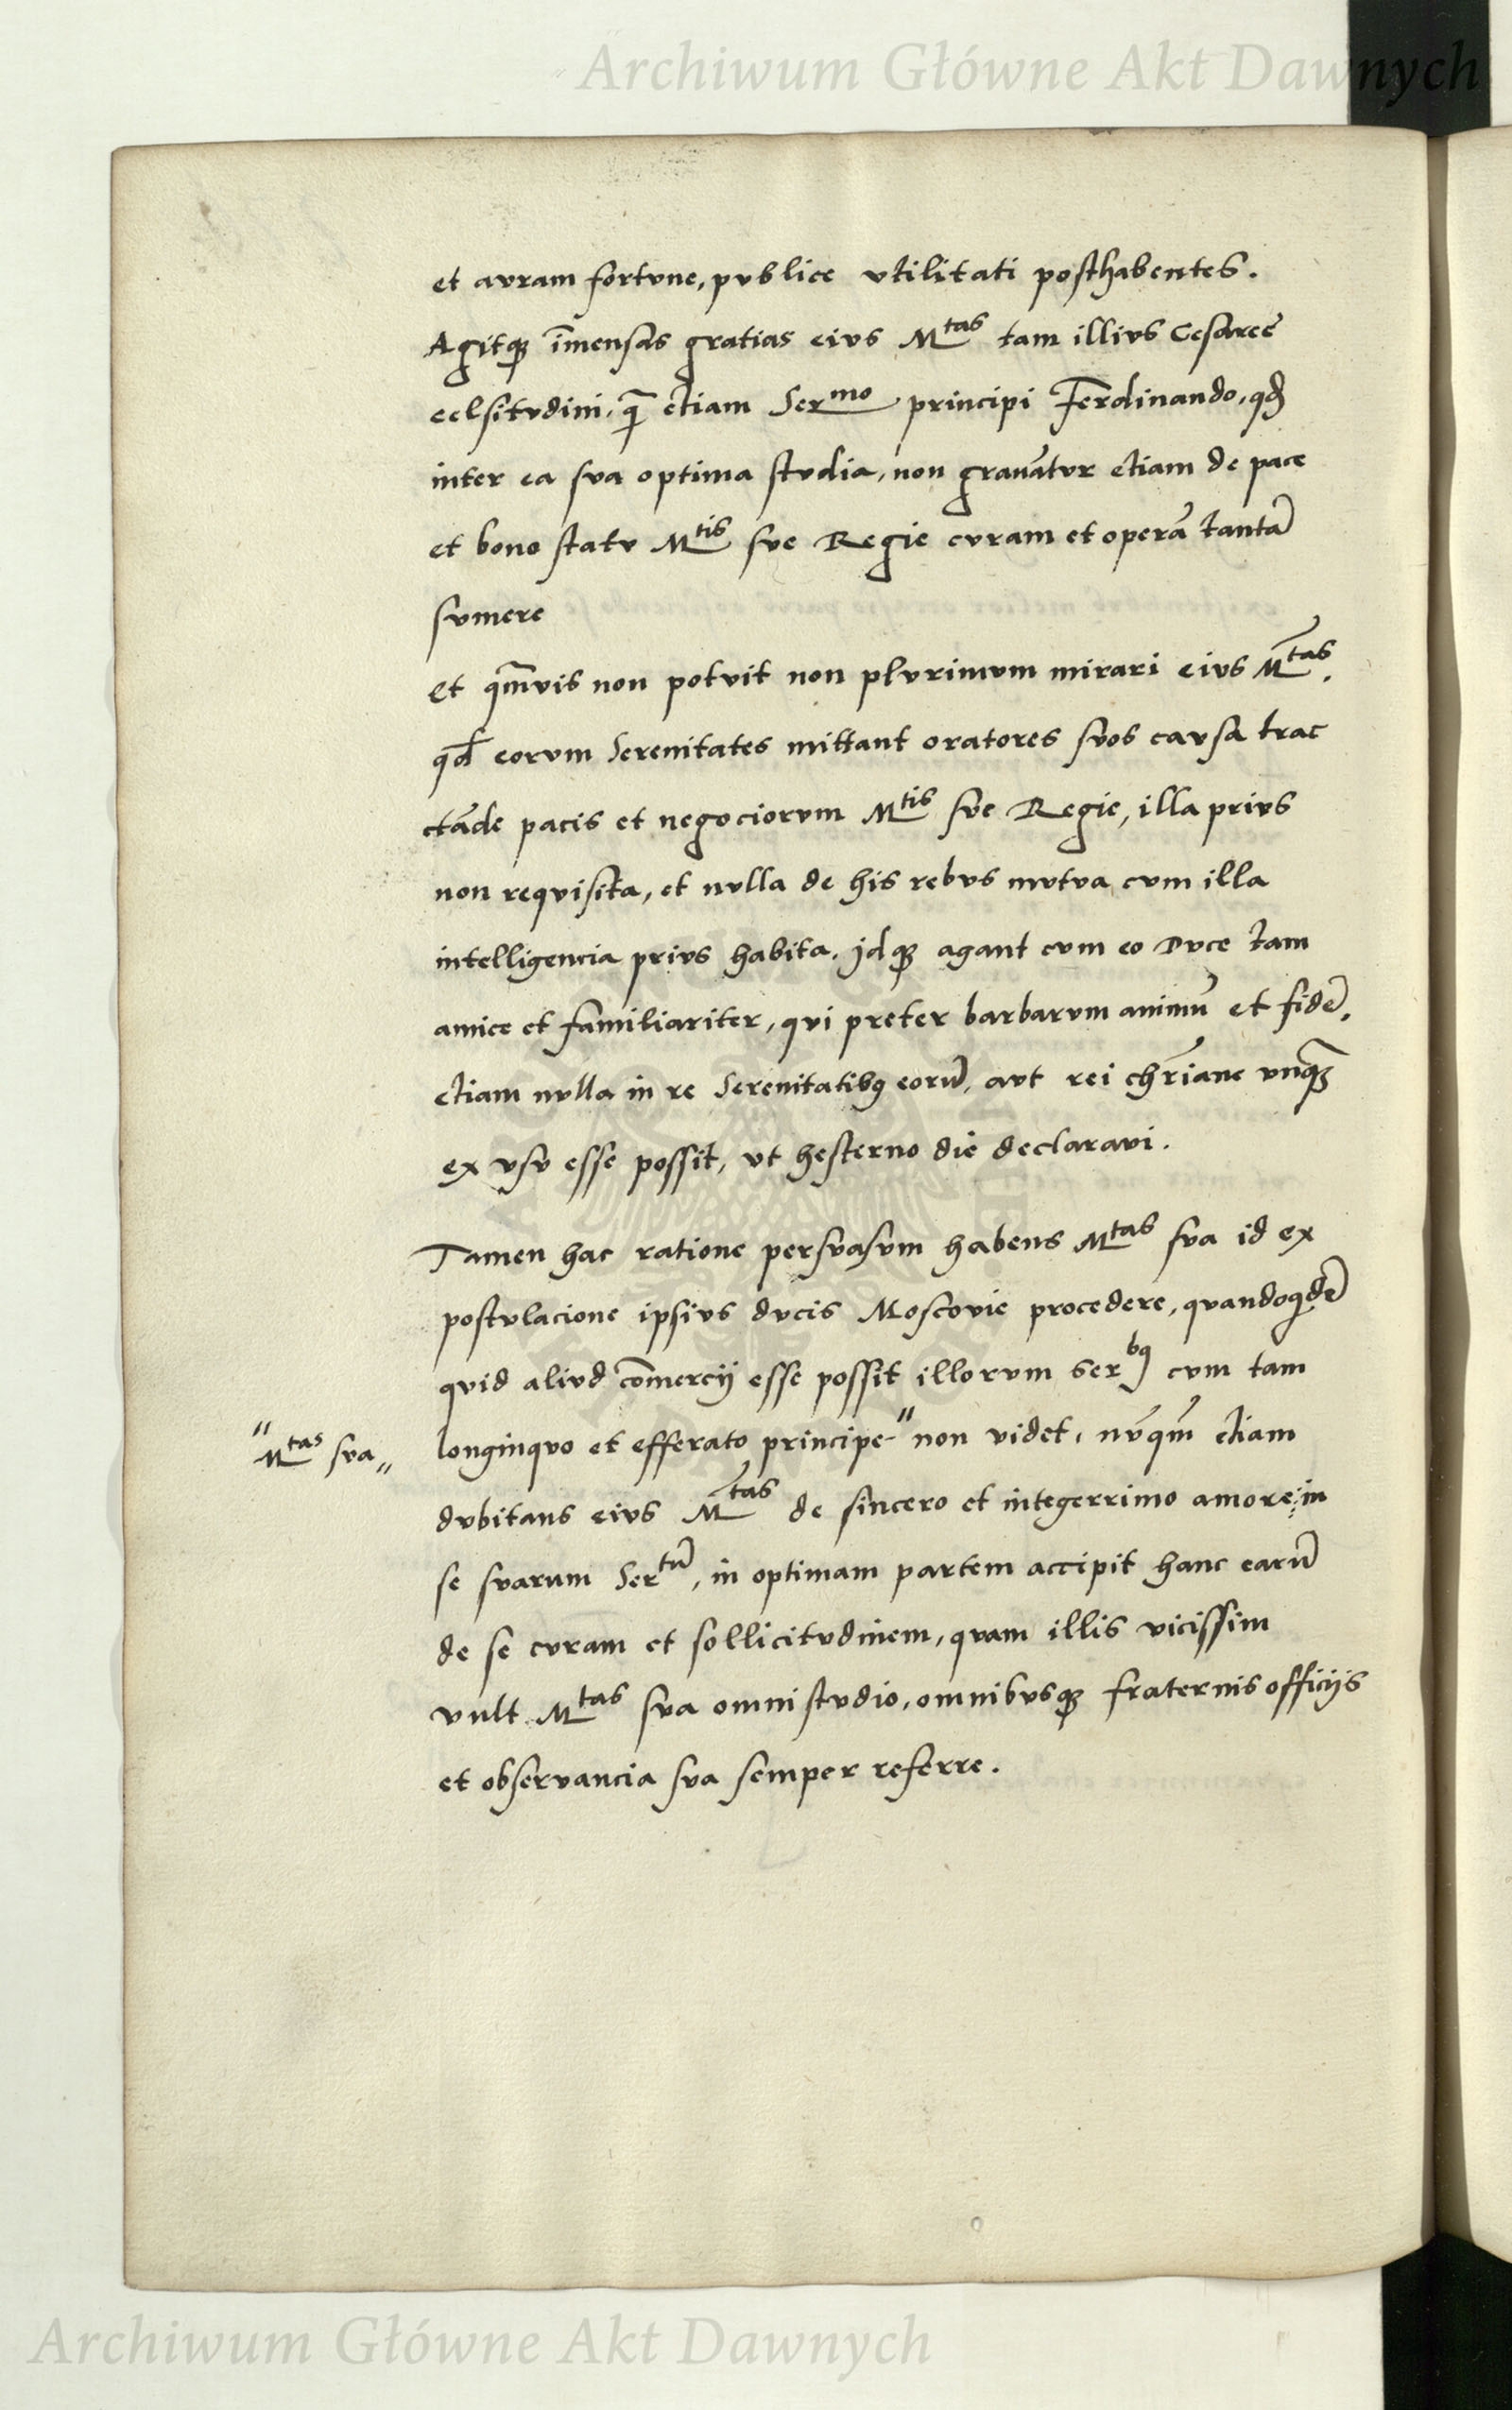 Archiwum Główne Akt Dawnych
et avram fortvne, pvblice vtilitati posthabentes.
Agitqȝ im̄ensas gratias eivs Mtas tam illivs Cesaree
celsitvdini, q̄ȝ etiam Sermo principi Ferdinando, qđ
inter ea sva optima stvdia, non gravātvr etiam de pace
et bono statv Mtis sve Regie cvram et operā tantā
svmere
Et q̄mvis non potvit non plvrimvm mirari eivs Mtas.
qđ eorvm Serenitates mittant oratores svos cavsa trac
ctāde pacis et negociorvm Mtis sve Regie, illa privs
non reqvisita, et nvlla de his rebvs mvtva cvm illa
intelligencia privs habita. jdqȝ agant cvm eo Dvce tam
amice et familiariter, qvi preter barbarvm animū et fidē.
etiam nvlla in re Serenitatibꝯ eorū, avt rei chr̄iane vnq̄ȝ
ex vsv esse possit, vt hesterno die declaravi.
Tamen hac ratione persvasvm habens Mtas sva id ex
postvlacione ipsivs dvcis Moscovie procedere, qvandoqdē
qvid alivd com̄ercij esse possit illorvm Serbꝯ cvm tam
longinqvo et efferato principe " non videt, nv̄qm̄ etiam
" Mtas sva "
dvbitans eivs Mtas de sincero et integerrimo amore in
se svarum Sertū, in optimam partem accipit hanc earū
de se cvram et sollicitvdinem, qvam illis vicissim
vult Mtas sva omni stvdio, omnibvsqȝ fraternis officijs
et observancia sva semper referre.
Archiwum Główne Akt Dawnych